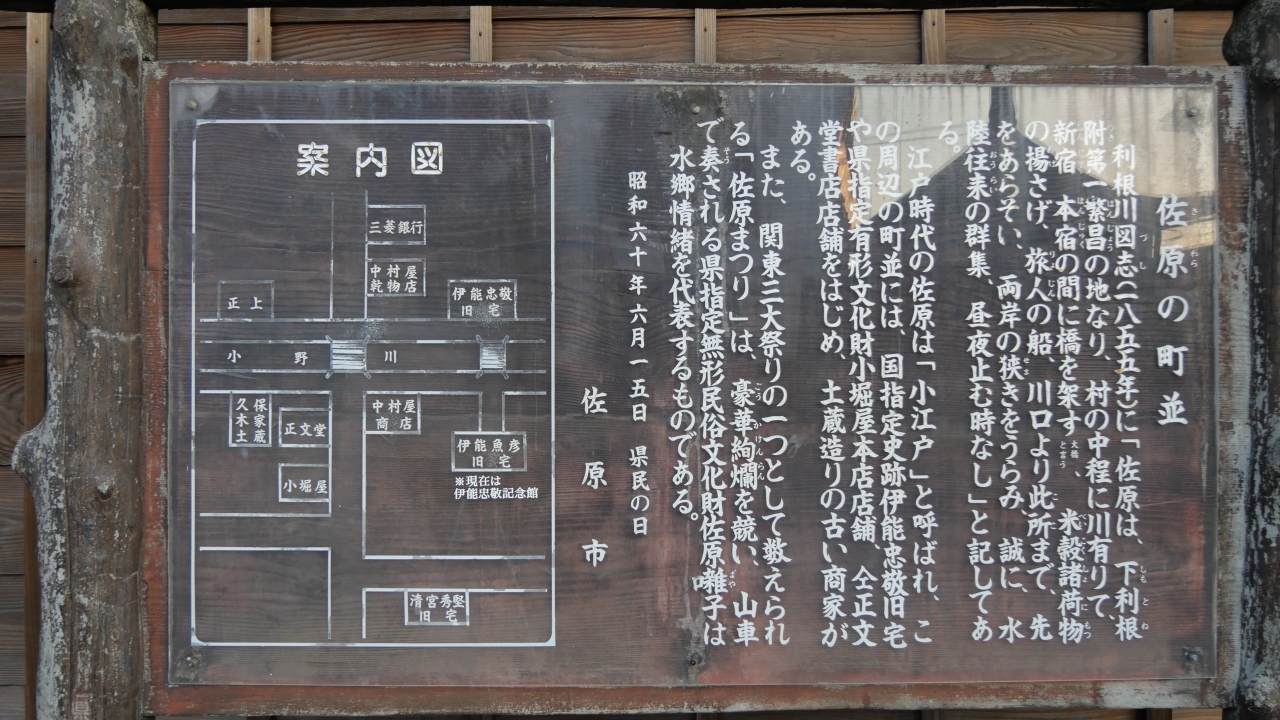 佐原の町並
利根川図志(一八五五年)に「佐原は、下利根
附第一繁昌の地なり、村の中程に川有りて、
新宿 本宿の間に橋を架す(大橋と言う)、米穀諸荷物
の揚さげ、旅人の船、川口より此所まで、先
をあらそい、両岸の狭きをうらみ、誠に、水
陸往来の群集、昼夜止む時なし」と記してあ
る。
江戸時代の佐原は「小江戸」と呼ばれ、こ
の周辺の町並には、国指定史跡伊能忠敬旧宅
や県指定有形文化財小堀屋本店店舗、仝正文
堂書店店舗をはじめ、土蔵造りの古い商家が
ある。
また、関東三大祭りの一つとして数えられ
る「佐原まつり」は、豪華絢爛を競い、山車
で奏される県指定無形民俗文化財佐原囃子は
水郷情緒を代表するものである。
昭和六十年六月一五日 県民の日
佐原市
案内図
三菱銀行
中村屋
乾物店
正上
伊能忠敬
旧宅
小野川
久保木家土蔵
正文堂
小堀屋
中村屋
商店
伊能魚彦
旧宅
※現在は
伊能忠敬記念館
清宮秀堅
旧宅